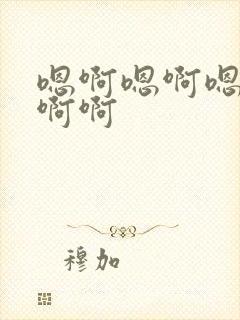 嗯啊嗯啊嗯
啊啊
穆加